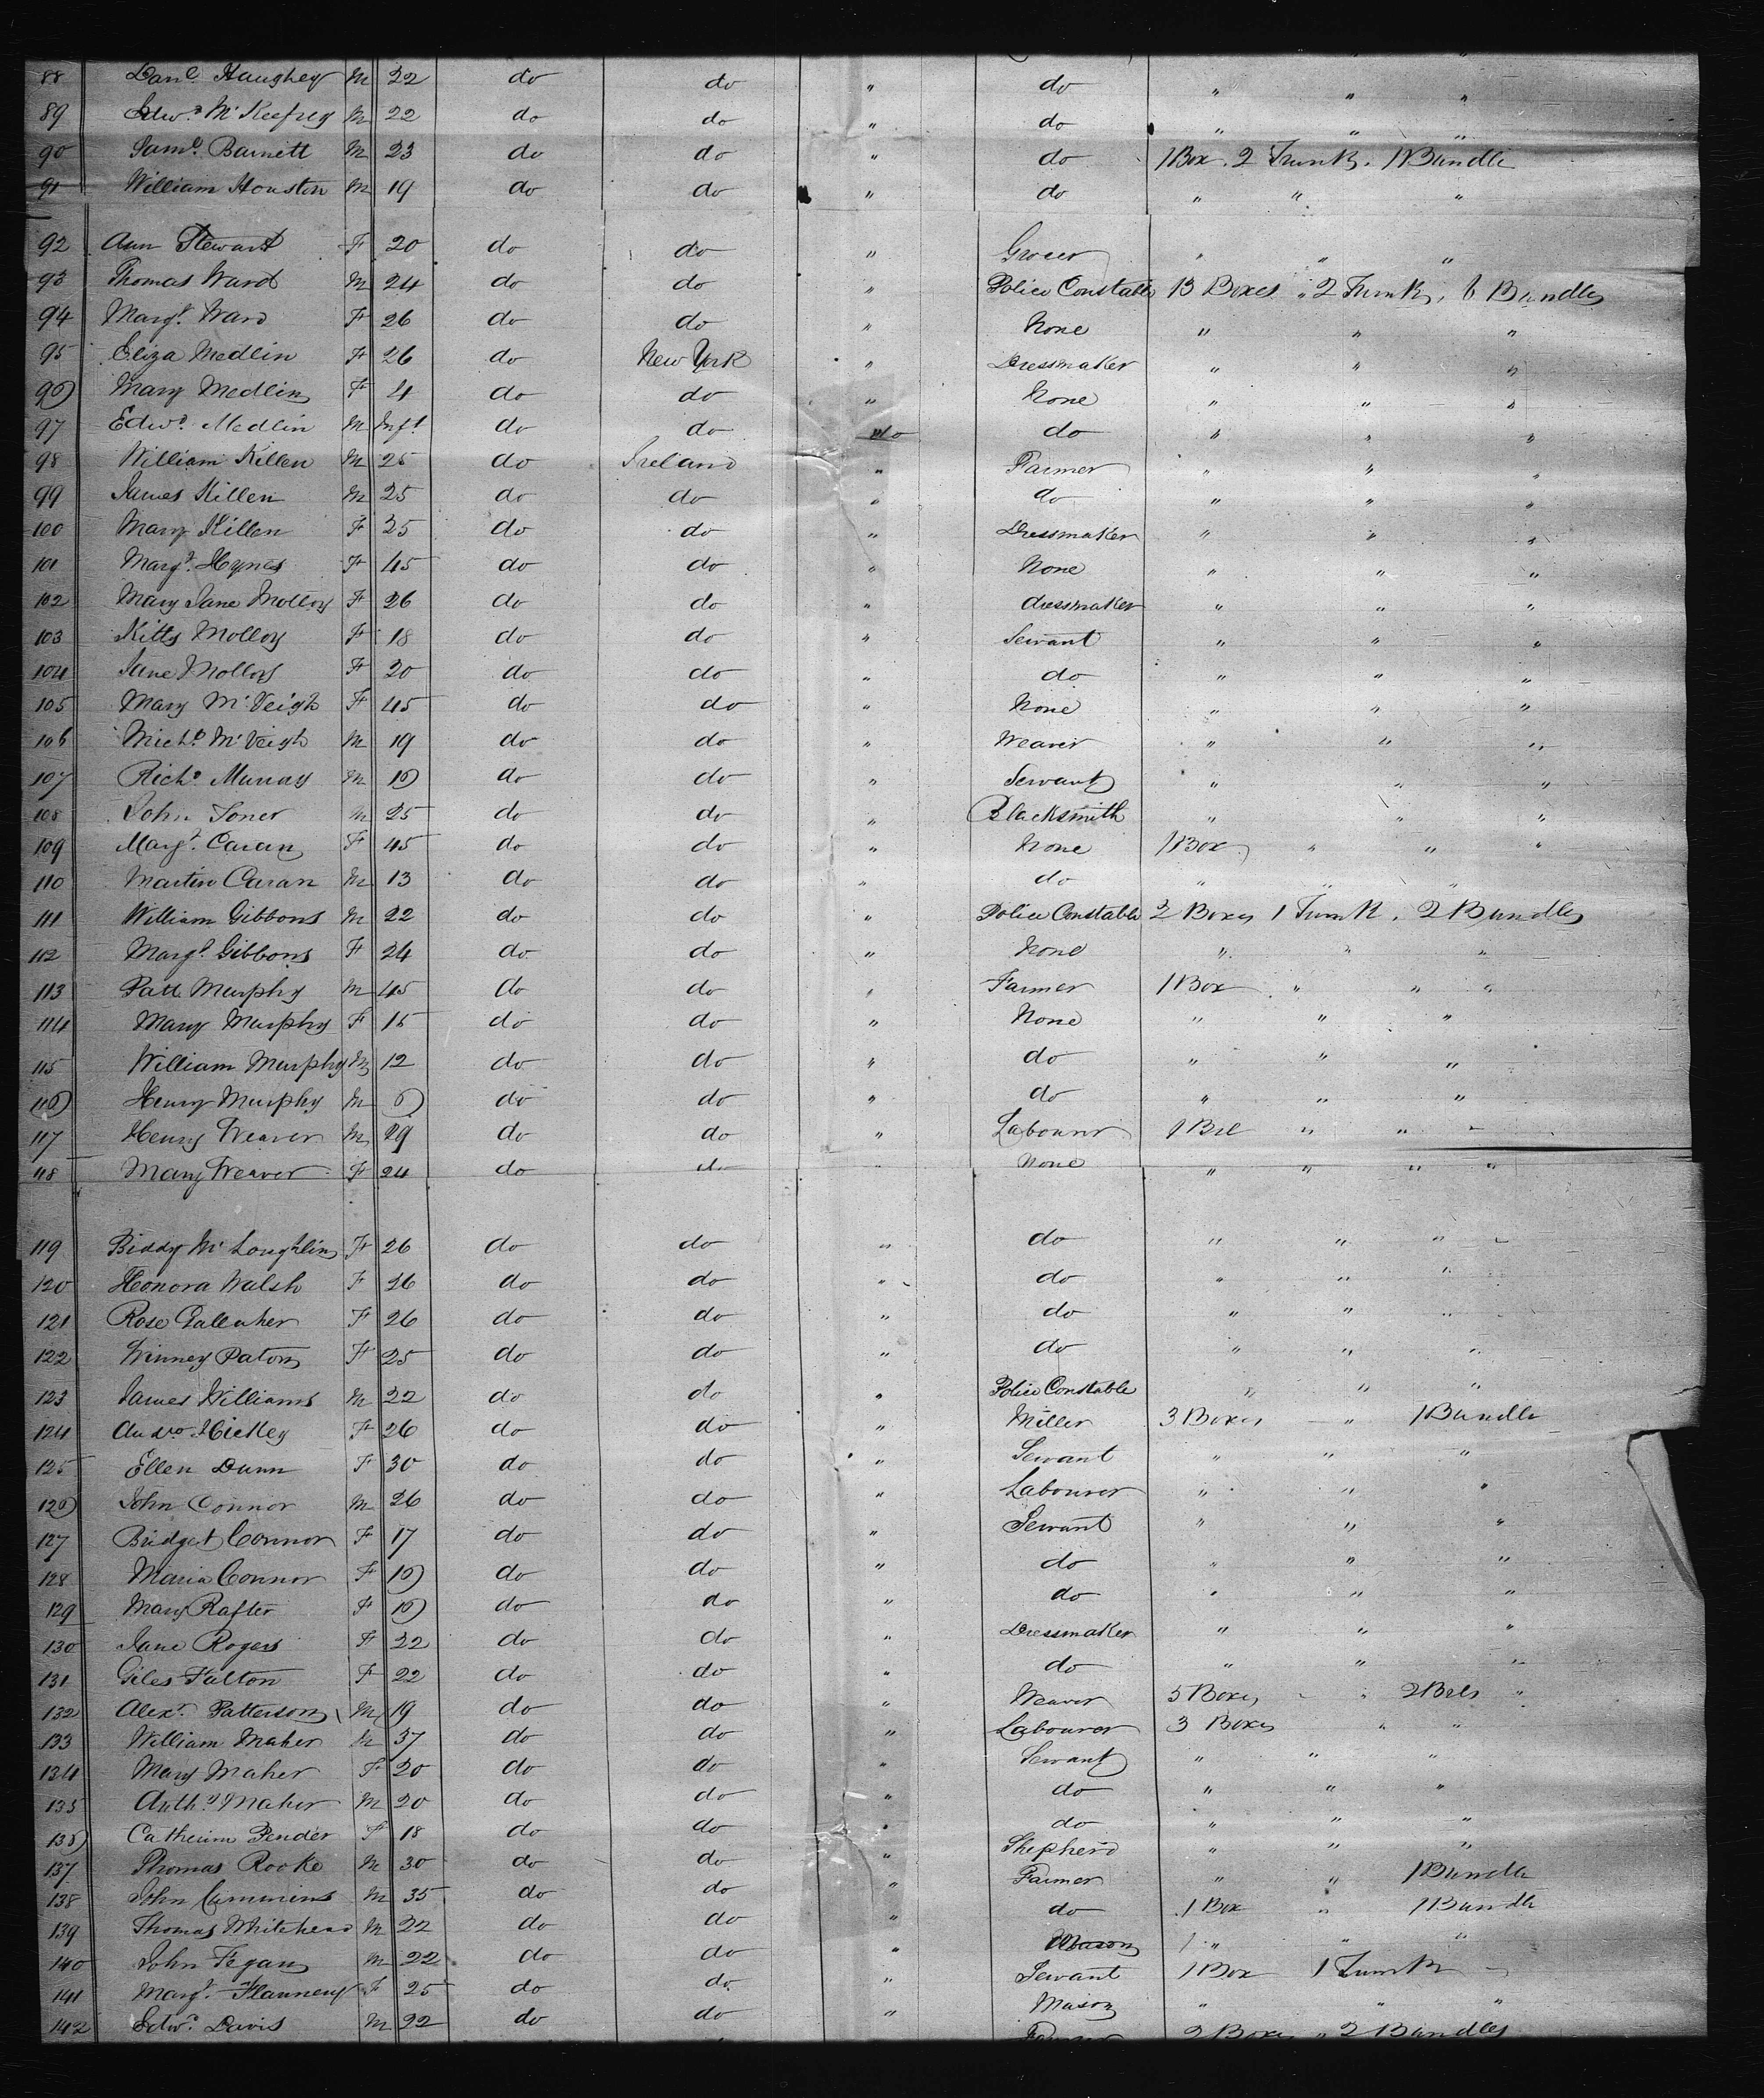 88 Danl. Haughey M 22 do do " do " " "
89 Edwd. McKeefrey M 22 do do " do " " "
90 Saml. Barnett M 23 do do " do 1 Box. 2 Trunks. 1 Bundle
91 William Houston M 19 do do " do " " "
92 Ann Stewart F 20 do do " Grocer " " "
93 Thomas Ward M 24 do do " Police Constable 13 Boxes " 2 Trunks, 6 Bundles
94 Margt. Ward F 26 do do " None " " "
95 Eliza Medlin F 26 do New York " Dressmaker " " "
96 Mary Medlin F 4 do do " None " " "
97 Edwd. Medlin M Inft. do do do do " " "
98 William Killen M 25 do Ireland " Farmer " " "
99 James Killen M 25 do do " do " " "
100 Mary Killen F 35 do do " Dressmaker " " "
101 Margt. Hynes F 45 do do " None " " "
102 Mary Jane Molloy F 26 do do " dressmaker " " "
103 Kitty Molloy F 18 do do " Servant " " "
104 Jane Molloy F 20 do do " do " " "
105 Mary McVeigh F 45 do do " None " " "
106 Michl. McVeigh M 19 do do " Weaver " " "
107 Richd. Murray M 16 do do " Servant " " "
108 John Toner M 25 do do " Blacksmith " " "
109 Margt. Caran F 45 do do " None 1 Box " " "
110 Martin Caran M 13 do do " do " " "
111 William Gibbons M 22 do do " Police Constable 2 Boxes 1 Trunk. 2 Bundles
112 Margt. Gibbons F 24 do do " None " " "
113 Patt Murphy M 45 do do " Farmer 1 Box " " "
114 Mary Murphy F 15 do do " None " " "
115 William Murphy M 12 do do " do " " "
116 Henry Murphy M 6 do do " do " " "
117 Henry Weaver M 29 do do " Labourer 1 Brl " " "
118 Mary Weaver F 24 do do " None " " " "
119 Biddy McLoughlin F 26 do do " do " " " "
120 Honora Walsh F 26 do do " do " " "
121 Rose Gallaher F 26 do do " do " " "
122 Winney Paton F 25 do do " do " " "
123 James Williams M 22 do do " Police Constable " " "
124 Andw. Hickey F 26 do do " Miller 3 Boxes " 1 Bundle
125 Ellen Dunn F 30 do do " Servant " " "
126 John Connor M 26 do do " Labourer " " "
127 Bridget Connor F 17 do do " Servant " " "
128 Maria Connor F 16 do do " do " " "
129 Mary Rafter F 16 do do " do " " "
130 Jane Rogers F 22 do do " Dressmaker " " "
131 Giles Falton F 22 do do " do " " "
132 Alexr. Patterson M 19 do do " Weaver 5 Boxes " " 2 Brls "
133 William Maher M 37 do do " Labourer 3 Boxes " "
134 Mary Maher F 20 do do " Servant " " "
135 Anthy. Maher M 20 do do " do " " "
136 Catherine Pender F 18 do do " do " " "
137 Thomas Rooke M 30 do do " Shepherd " " "
138 John Cummins M 35 do do " Farmer " " 1 Bundle
139 Thomas Whitehead M 22 do do " do 1 Box " 1 Bundle
140 John Fegan M 22 do do " Mason 1 " " "
141 Margt. Flannery F 25 do do " Servant 1 Box 1 Trunk
142 Edwd. Davis M 22 do do " Mason " " "
Farmer 2 Boxes " 2 Bundles